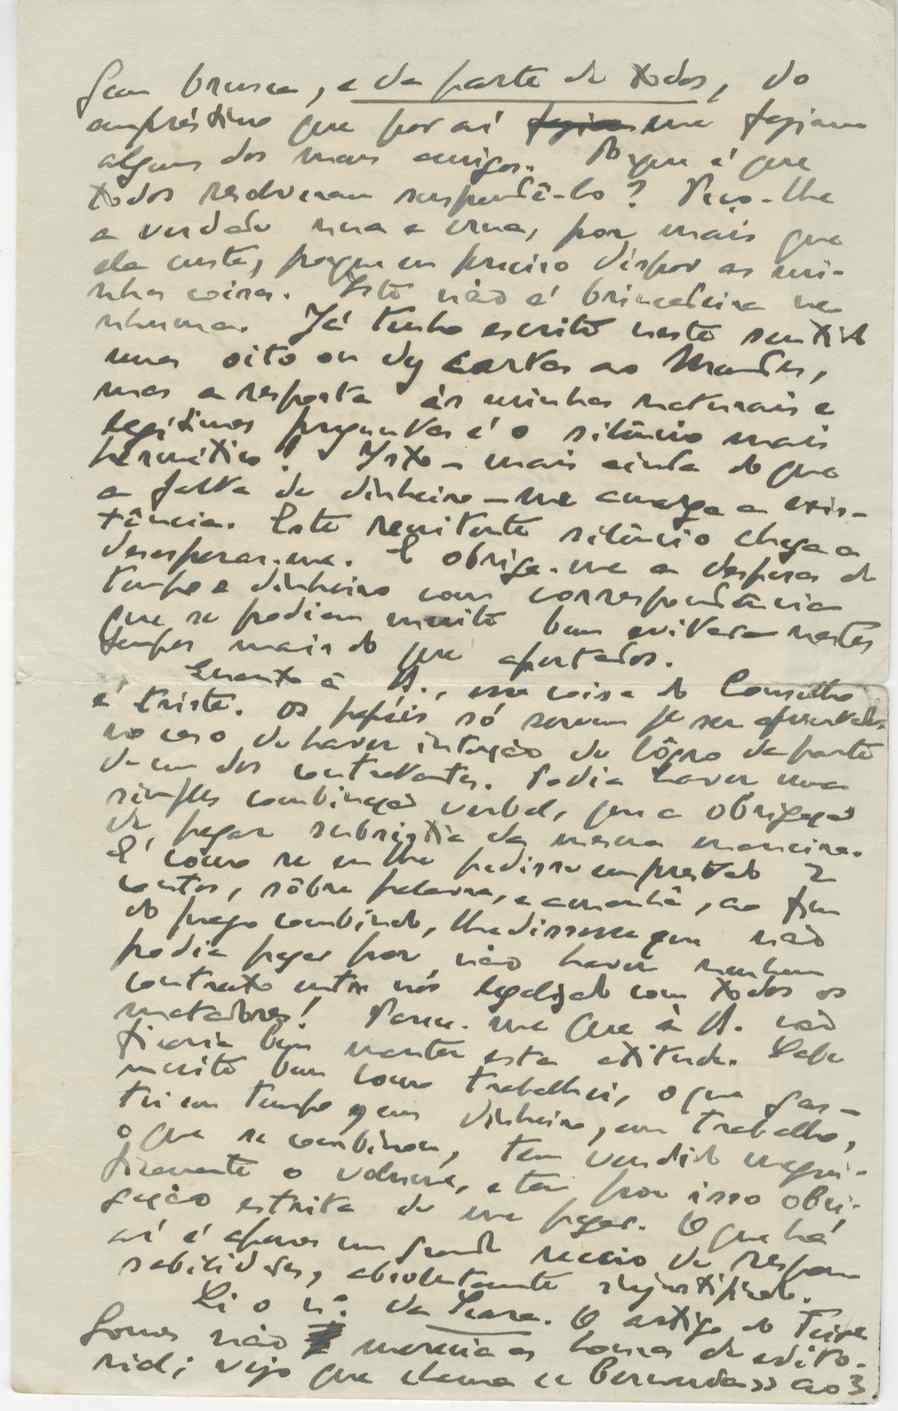 brusca, e da parte de todos, do
empréstimo que por aí me faziam
alguns dos meus amigos. Porque é que
todos resolveram suspendê-lo? Peço-lhe
a verdade nua e crua, por mais que
ela custe, porque eu preciso dispor as mi-
nhas coisas. Isto não é brincadeira ne
nhuma. Já tenho escrito neste sentido
umas oito ou dez cartas ao Mendes,
mas a resposta às minhas naturais e
legítimas preguntas é o silêncio mais
hermético! Isto — mais ainda do que
a falta de dinheiro — me amarga a exis-
tência. Este renitente silêncio chega a
desesperar-me. E obriga-me a despesas de
tempo e dinheiro com correspondência
que se podiam muito bem evitar nestes
tempos mais do que apertados.
Quanto à A., essa coisa do Conselho
é triste. Os papéis só servem pª ser apresentados
no caso de haver intenção de lôgro da parte
de um dos contratantes. Podia haver uma
simples combinação verbal, que a obrigação
de pagar subsistia da mesma maneira.
É como se eu lhe pedisse emprestado 2
contos, sôbre palavra, e amanhã, ao fim
do prazo combinado, lhe dissesse que não
podia pagar por não haver nenhum
contrato entre nós legalizado com todos os
matadores! Parece-me que à A. não
ficaria bem manter esta atitude. Sabe
muito bem como trabalhei, o que gas-
tei em tempo e em dinheiro, em trabalho,
o que se combinou, tem vendido magni-
ficamente o volume, e tem por isso obri-
gação estrita de me pagar. O que há
aí é apenas um grande receio de respon
sabilidades, absolutamente injustificado.
Li o nº da Seara. O artigo do Teixª
Gomes não merecia as honras de edito-
rial; vejo que chama ao 3